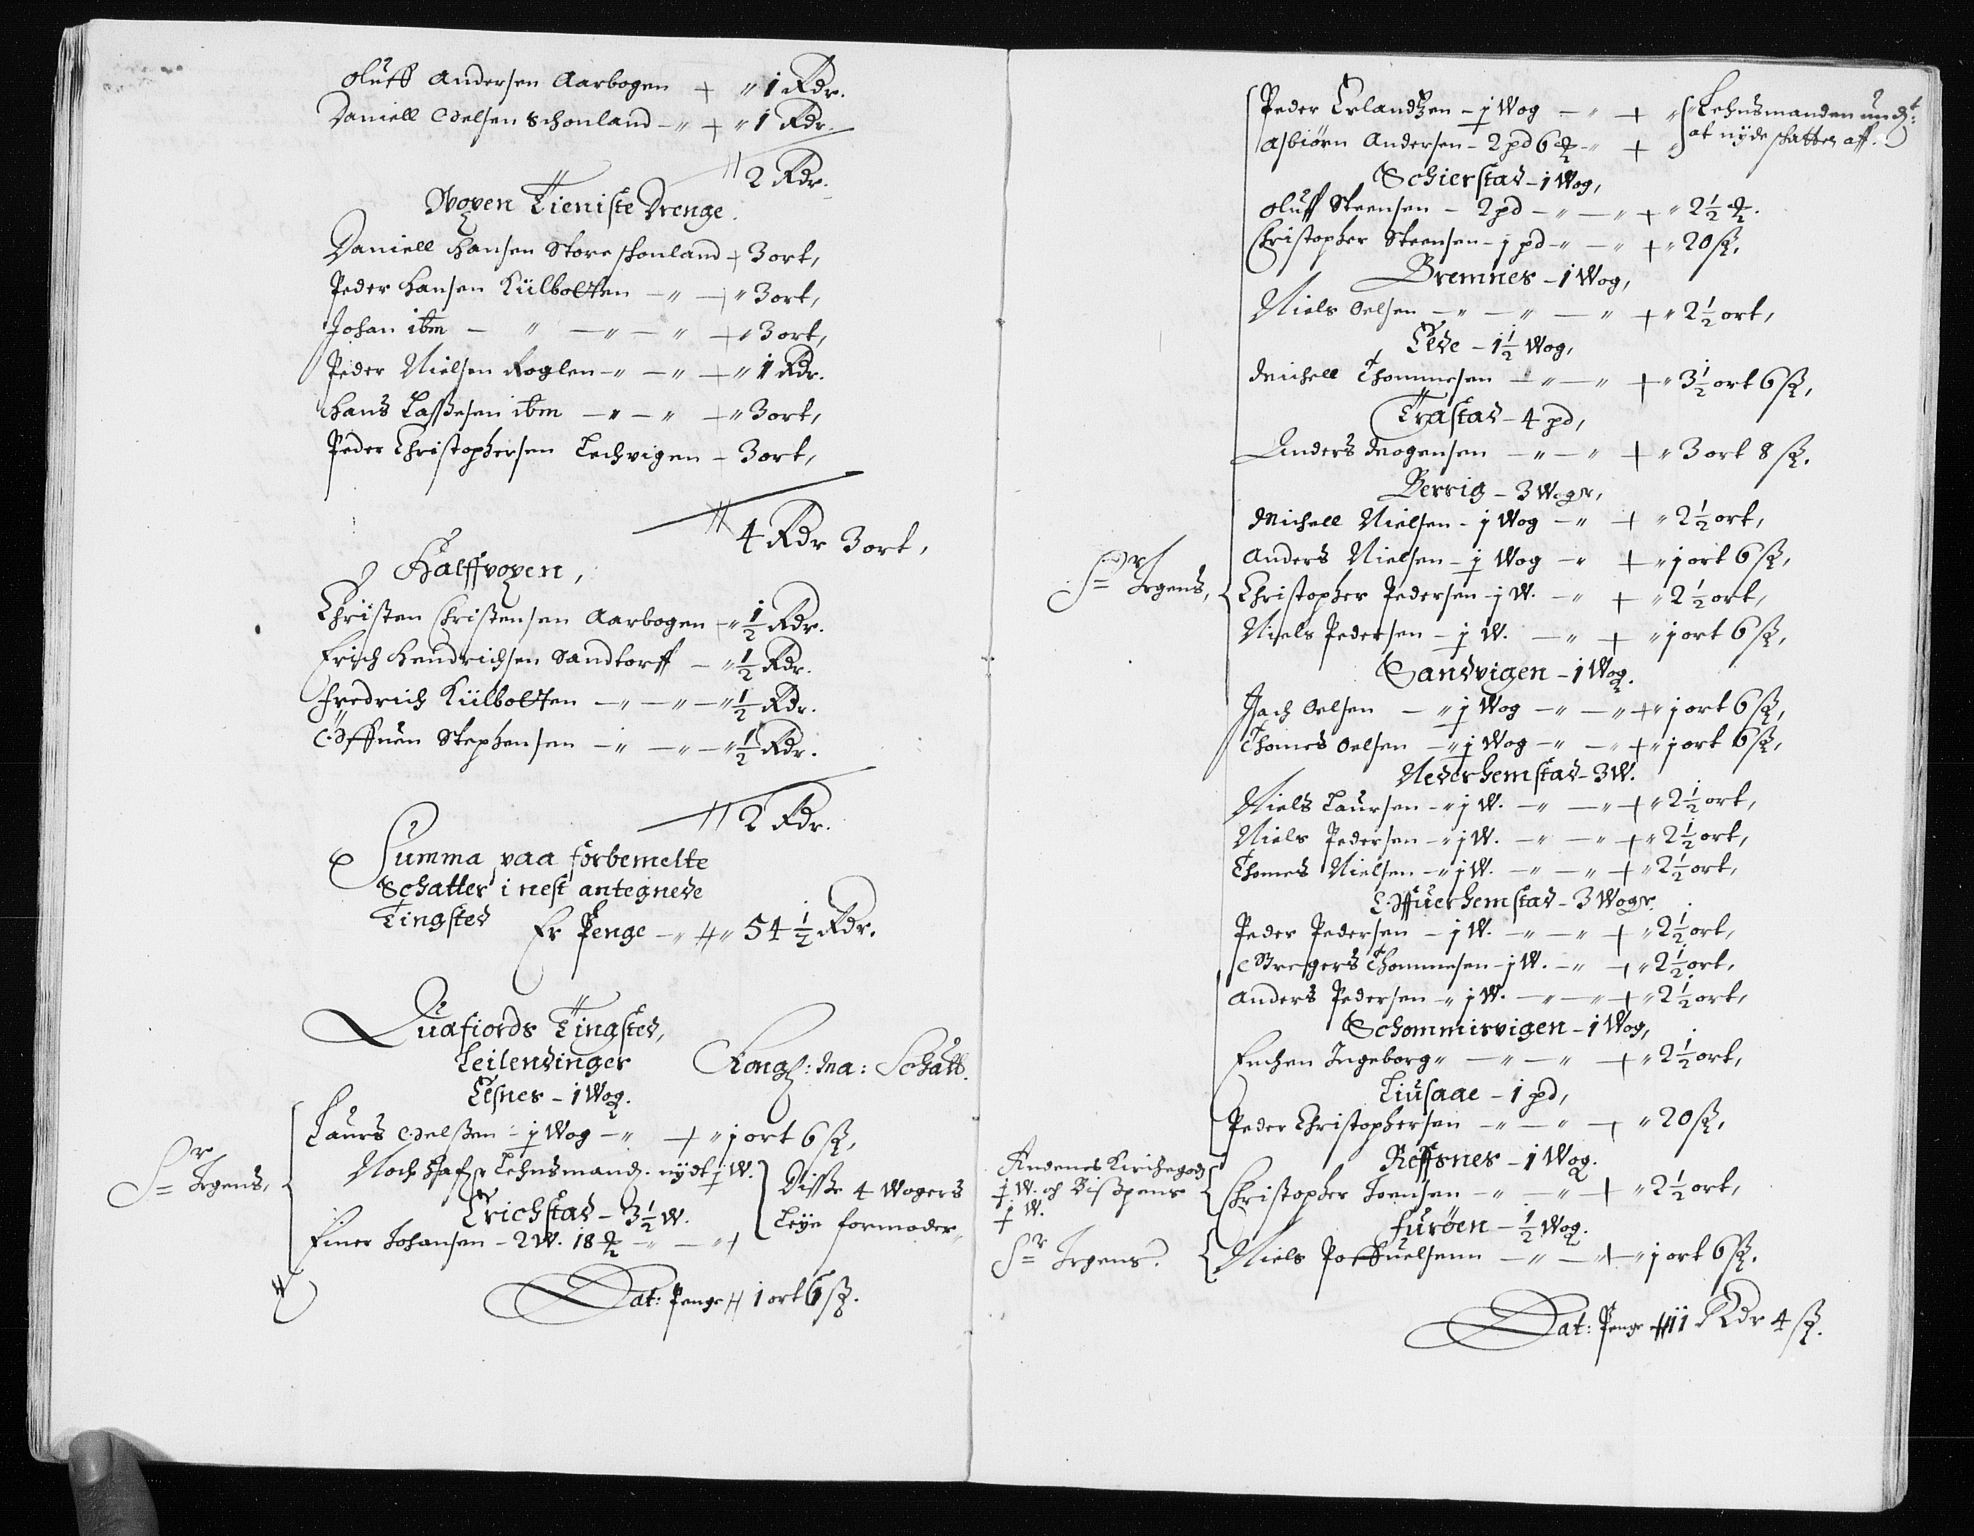 Oluff Andersen Aarbogen + " 1 Rdr.
Daniell Oelsen Schonland - " + " 1 Rdr.
2 Rdr.
Woxen Tieniste Drenge.
Daniell Hansen Store schonland + 3 ort,
Peder Hansen Kiilbotten - " - + " 3 ort,
Johan ibm - " - " - " + " 3 ort,
Peder Nielsen Roglen - " - " + " 1 Rdr.
Hans Lassesen ibm - " - " + " 3 ort,
Peder Christophersen Lechvigen - 3 ort,
4 Rdr 3 ort,
Halffvoxen,
Christen Christensen Aarbogen - " ½ Rdr.
Erich Hendrichsen Sandtorff - " ½ Rdr.
Fredrich Kiilbotten - " - " - " ½ Rdr.
Öffuen Stephensen - " - " - " ½ Rdr.
2 Rdr.
Summa paa forbemelte
Schatter i nest antegnede
Tingsted
Er Penge - " # " 54 ½ Rdr.
Quafiords Tingsted,
Leilendinger Kongl: Ma: Schatt.
Elsnes - 1 Wog.
Sr Irgens,
Laurs Oelssen - j Wog - " + " j ort 6 ß,
Noch hafr Lehnsmand. nydt j W.
Erichstad - 3½ W.
Einer Johansen - 2 W. 18 - " - " +
Disse 4 Wogers
Leye formoder
Lat: Penge # 1 ort 6 ß.
Peder Erlandsen - j Wog - " + "
Asbiørn Andersen - 2 pd 6 - " + "
Lehnsmanden undt:
at nyde schatten aff.
Schierstad - 1 Wog,
Oluff Steensen - 2 pd - " - " + " 2½
Christopher Steensen - j pd - " - " + " 20 ß,
Bremnes - 1 Wog,
Niels Oelsen - " - " - " + " 2½ ort,
Elde - 1½ Wog,
Michell Thommesen - " - " + " 3½ ort 6 ß,
Trastad - 4 pd,
Anders Mogensen - " - " + " 3 ort 8 ß.
Berrig - 3 Woger,
Sr Irgens,
Michell Nielsen - j Wog - " + " 2½ ort,
Anders Nielsen - j Wog - " + " j ort 6 ß,
Christopher Pedersen - j W. - " + " 2½ ort,
Niels Pedersen - j W. - " + " j ort 6 ß,
Sandvigen - 1 Wog.
Jach Oelsen - " j Wog - " - " + " j ort 6 ß,
Thomes Oelsen - " j Wog - " - " + " j ort 6 ß,
Nederhemstad - 3 W.
Niels Laursen - " j W. - " - " + " 2½ ort,
Niels Pedersen - " j W. - " - " + " 2½ ort,
Thomes Nielsen - " j W. - " - " + " 2½ ort,
Offuerhemstad - 3 Woger.
Peder Pedersen - j W. - " - " + " 2½ ort,
Bregers Thommesen - j W. - " + " 2½ ort,
Anders Pedersen - " j W. - " - " + " 2½ ort,
Schommervigen - 1 Wog,
Enchen Ingeborg " - " - " + " 2½ ort,
Liusaae - 1 pd,
Peder Christophersen - " - " + " 20 ß,
Reffsnes - 1 Wog.
Andenes Kirchegods
j W. och Bisspens
j W.
Christopher Joensen - " - " + " 2½ ort,
Furöen - ½ Wog.
Sr Irgens.
Niels Poffuelsenn - " - " + " j ort 6 ß.
Lat: Penge # 11 Rdr 4 ß.